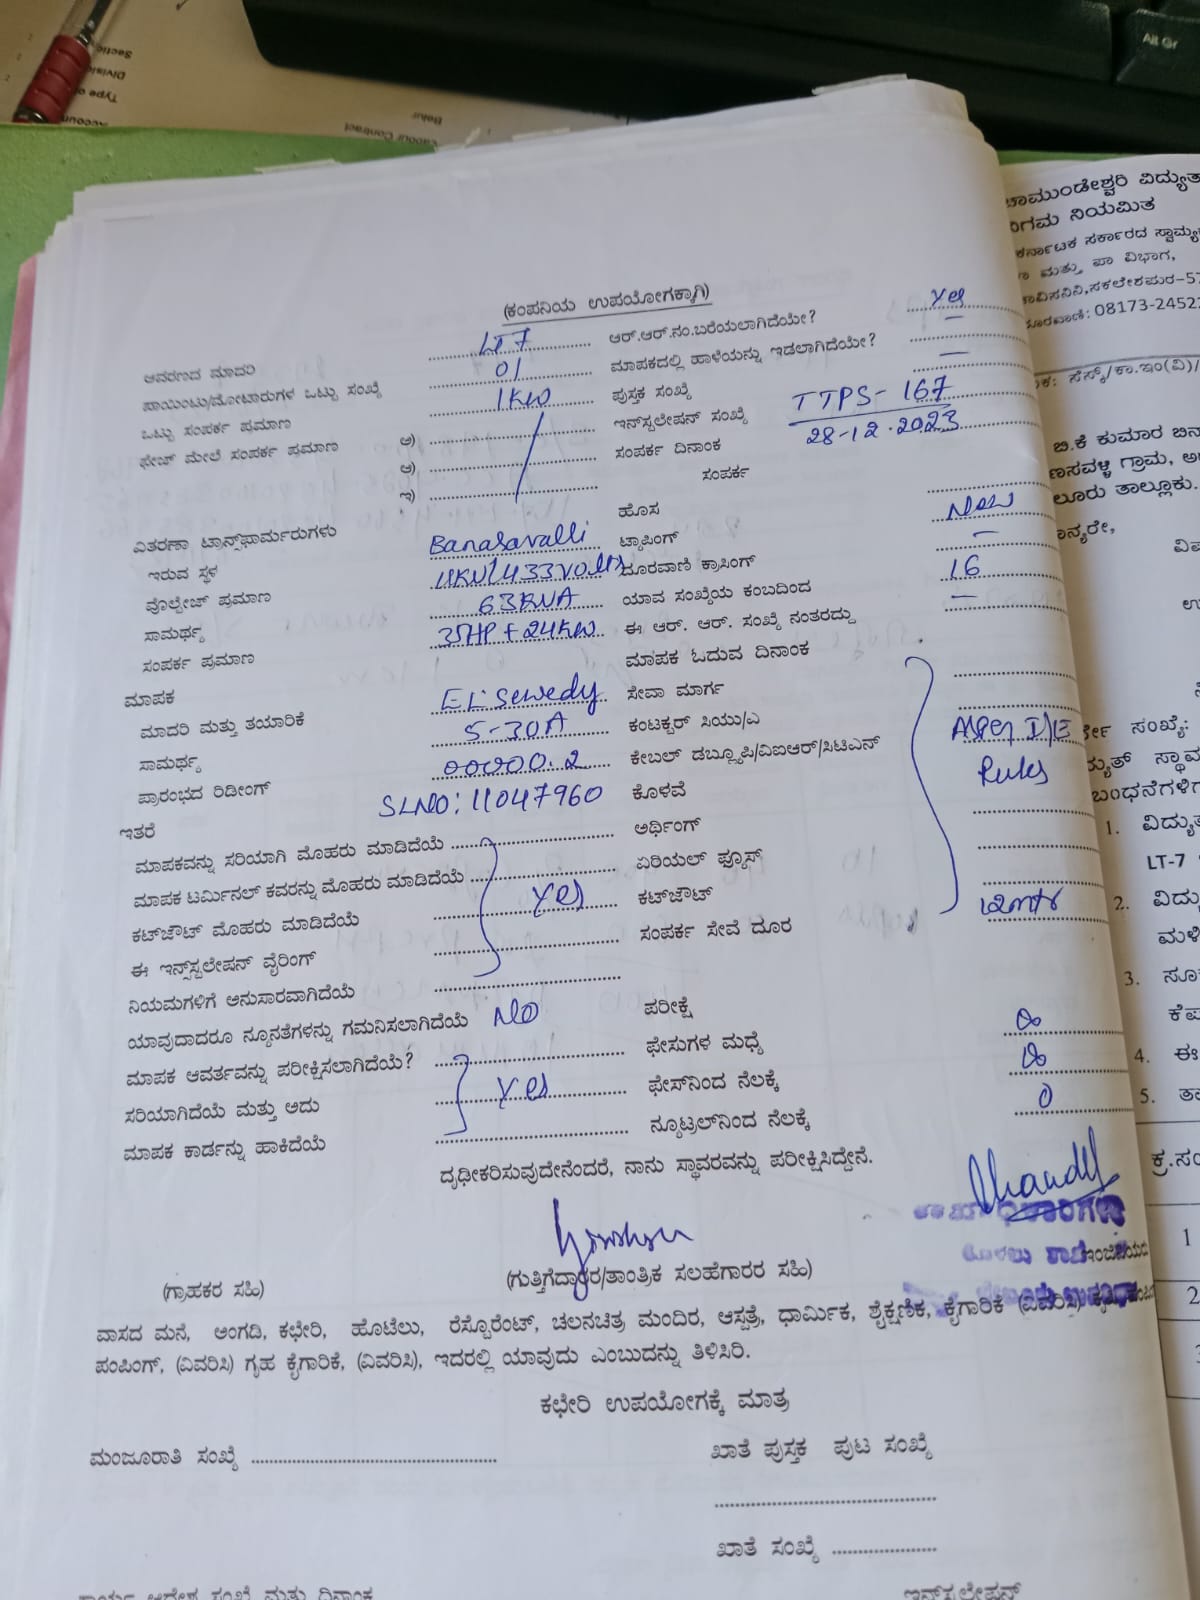 Alt Gr
Sectio
Divisio
Type o
Accoun
Belur
Labour Contract
(ಕಂಪನಿಯ ಉಪಯೋಗಕ್ಕಾಗಿ)
ಆವರಣದ ಮಾದರಿ LT 7 ಆರ್.ಆರ್.ನಂ.ಬರೆಯಲಾಗಿದೆಯೇ? Yes
ಪಾಯಿಂಟು/ಮೋಟಾರುಗಳ ಒಟ್ಟು ಸಂಖ್ಯೆ 01 ಮಾಪಕದಲ್ಲಿ ಹಾಳೆಯನ್ನು ಇಡಲಾಗಿದೆಯೇ? —
ಒಟ್ಟು ಸಂಪರ್ಕ ಪ್ರಮಾಣ 1KW ಪುಸ್ತಕ ಸಂಖ್ಯೆ —
ಫೇಜ್ ಮೇಲೆ ಸಂಪರ್ಕ ಪ್ರಮಾಣ ಅ) ಇನ್‌ಸ್ಟಲೇಷನ್ ಸಂಖ್ಯೆ TTPS-167
ಆ) ಸಂಪರ್ಕ ದಿನಾಂಕ 28-12-2023
ಇ) ಸಂಪರ್ಕ
ವಿತರಣಾ ಟ್ರಾನ್ಸ್‌ಫಾರ್ಮರುಗಳು ಹೊಸ New
ಇರುವ ಸ್ಥಳ Banasavalli ಟ್ಯಾಪಿಂಗ್ —
ವೊಲ್ಟೇಜ್ ಪ್ರಮಾಣ 11KV/433volts ದೂರವಾಣಿ ಕ್ರಾಸಿಂಗ್ 16
ಸಾಮರ್ಥ್ಯ 63KVA ಯಾವ ಸಂಖ್ಯೆಯ ಕಂಬದಿಂದ —
ಸಂಪರ್ಕ ಪ್ರಮಾಣ 35HP + 24KW ಈ ಆರ್. ಆರ್. ಸಂಖ್ಯೆ ನಂತರದ್ದು
ಮಾಪಕ ಮಾಪಕ ಓದುವ ದಿನಾಂಕ
ಮಾದರಿ ಮತ್ತು ತಯಾರಿಕೆ EL Sewedy ಸೇವಾ ಮಾರ್ಗ
ಸಾಮರ್ಥ್ಯ 5-30A ಕಂಟಕ್ಟರ್ ಸಿಯು/ಎ As per I/E
ಪ್ರಾರಂಭದ ರಿಡೀಂಗ್ 00000.2 ಕೇಬಲ್ ಡಬ್ಲ್ಯೂಪಿ/ವಿಐಆರ್/ಸಿಟಿಎಸ್ Rules
ಇತರೆ SLNO: 11047960 ಕೊಳವೆ
ಮಾಪಕವನ್ನು ಸರಿಯಾಗಿ ಮೊಹರು ಮಾಡಿದೆಯೆ ಅರ್ಥಿಂಗ್
ಮಾಪಕ ಟರ್ಮಿನಲ್ ಕವರನ್ನು ಮೊಹರು ಮಾಡಿದೆಯೆ ಏರಿಯಲ್ ಫ್ಯೂಸ್
ಕಟ್‌ಔಟ್ ಮೊಹರು ಮಾಡಿದೆಯೆ Yes ಕಟ್‌ಔಟ್
ಈ ಇನ್ಸ್‌ಸ್ಟಲೇಷನ್ ವೈರಿಂಗ್ ಸಂಪರ್ಕ ಸೇವೆ ದೂರ
ನಿಯಮಗಳಿಗೆ ಅನುಸಾರವಾಗಿದೆಯೆ
ಯಾವುದಾದರೂ ನ್ಯೂನತೆಗಳನ್ನು ಗಮನಿಸಲಾಗಿದೆಯೆ NO ಪರೀಕ್ಷೆ
ಮಾಪಕ ಆವರ್ತವನ್ನು ಪರೀಕ್ಷಿಸಲಾಗಿದೆಯೆ? ಫೇಸುಗಳ ಮಧ್ಯೆ
ಸರಿಯಾಗಿದೆಯೆ ಮತ್ತು ಅದು Yes ಫೇಸ್‌ನಿಂದ ನೆಲಕ್ಕೆ
ಮಾಪಕ ಕಾರ್ಡನ್ನು ಹಾಕಿದೆಯೆ ನ್ಯೂಟ್ರಲ್‌ನಿಂದ ನೆಲಕ್ಕೆ 0
ದೃಢೀಕರಿಸುವುದೇನೆಂದರೆ, ನಾನು ಸ್ಥಾವರವನ್ನು ಪರೀಕ್ಷಿಸಿದ್ದೇನೆ.
(ಗ್ರಾಹಕರ ಸಹಿ) (ಗುತ್ತಿಗೆದಾರರ/ತಾಂತ್ರಿಕ ಸಲಹೆಗಾರರ ಸಹಿ)
ವಾಸದ ಮನೆ, ಅಂಗಡಿ, ಕಛೇರಿ, ಹೊಟೆಲು, ರೆಸ್ಟೊರೆಂಟ್, ಚಲನಚಿತ್ರ ಮಂದಿರ, ಆಸ್ಪತ್ರೆ, ಧಾರ್ಮಿಕ, ಶೈಕ್ಷಣಿಕ, ಕೈಗಾರಿಕೆ (ವಿವರಿಸಿ)
ಪಂಪಿಂಗ್, (ವಿವರಿಸಿ) ಗೃಹ ಕೈಗಾರಿಕೆ, (ವಿವರಿಸಿ), ಇದರಲ್ಲಿ ಯಾವುದು ಎಂಬುದನ್ನು ತಿಳಿಸಿರಿ.
ಕಛೇರಿ ಉಪಯೋಗಕ್ಕೆ ಮಾತ್ರ
ಮಂಜೂರಾತಿ ಸಂಖ್ಯೆ ಖಾತೆ ಪುಸ್ತಕ ಪುಟ ಸಂಖ್ಯೆ
ಖಾತೆ ಸಂಖ್ಯೆ
ಕಾರ್ಯ ಆದೇಶ ಸಂಖ್ಯೆ ಮತ್ತು ದಿನಾಂಕ ಇನ್‌ಸ್ಟಲೇಷನ್
ಚಾಮುಂಡೇಶ್ವರಿ ವಿದ್ಯುತ
ನಿಗಮ ನಿಯಮಿತ
ಕರ್ನಾಟಕ ಸರ್ಕಾರದ ಸ್ವಾಮ್ಯ
ಮತ್ತು ಪಾ ವಿಭಾಗ,
ಕಾವಿಸನಿನಿ,ಸಕಲೇಶಪುರ-57
ದೂರವಾಣಿ: 08173-2452
ಸೆಸ್ಕ್/ಕಾ.ಇಂ(ವಿ)/
ಬಿ.ಕೆ ಕುಮಾರ ಬಿನ
ಣಸವಳ್ಳಿ ಗ್ರಾಮ, ಅ
ಲೂರು ತಾಲ್ಲೂಕು.
ಮಾನ್ಯರೇ,
ವಿಷ
ಉ
ರ್ಕೀ ಸಂಖ್ಯೆ:
ದ್ಯುತ್ ಸ್ಥಾವ
ಬಂಧನೆಗಳಿಗ
1. ವಿದ್ಯುತ
LT-7
2. ವಿದ್ಯು
ಮಳಿ
3. ಸೂಕ
ಕೆಪ
4. ಈ
5. ತಾ
ಕ್ರ.ಸಂ
1
2
3